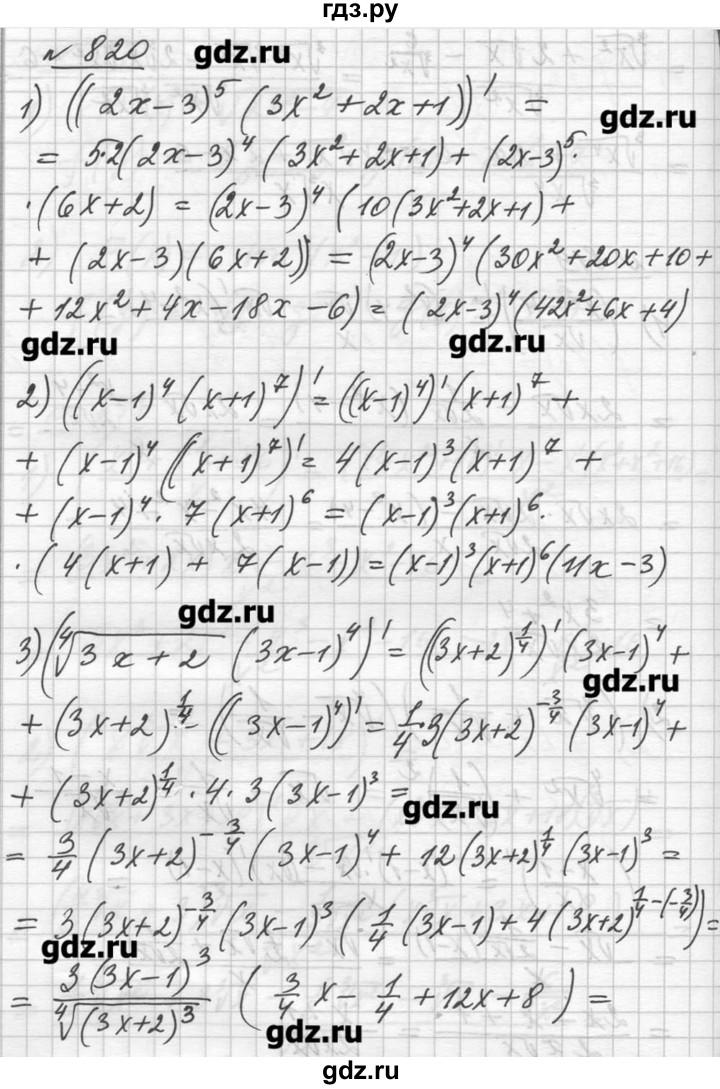 гдз.ру
№ 820 gdz.ru
1) ((2x-3)^5 (3x^2+2x+1))' = gdz.ru
= 5·2(2x-3)^4 (3x^2+2x+1) + (2x-3)^5·
·(6x+2) = (2x-3)^4 (10(3x^2+2x+1) +
+ (2x-3)(6x+2)) = (2x-3)^4 (30x^2+20x+10+
+ 12x^2+4x-18x-6) = (2x-3)^4 (42x^2+6x+4)
gdz.ru gdz.ru
2) ((x-1)^4 (x+1)^7)' = ((x-1)^4)' (x+1)^7 +
+ (x-1)^4 ((x+1)^7)' = 4(x-1)^3 (x+1)^7 +
+ (x-1)^4 · 7(x+1)^6 = (x-1)^3 (x+1)^6·
·(4(x+1) + 7(x-1)) = (x-1)^3 (x+1)^6 (11x-3)
gdz.ru
3) (∜(3x+2) (3x-1)^4)' = ((3x+2)^(1/4))' (3x-1)^4 +
gdz.ru
+ (3x+2)^(1/4) · ((3x-1)^4)' = 1/4·3(3x+2)^(-3/4) (3x-1)^4 +
+ (3x+2)^(1/4) · 4 · 3(3x-1)^3 = gdz.ru
= 3/4 (3x+2)^(-3/4) (3x-1)^4 + 12(3x+2)^(1/4) (3x-1)^3 =
= 3(3x+2)^(-3/4) (3x-1)^3 (1/4 (3x-1) + 4(3x+2)^(1/4-(-3/4))) =
gdz.ru
= 3(3x-1)^3 / ∜((3x+2)^3) (3/4 x - 1/4 + 12x + 8) =
gdz.ru